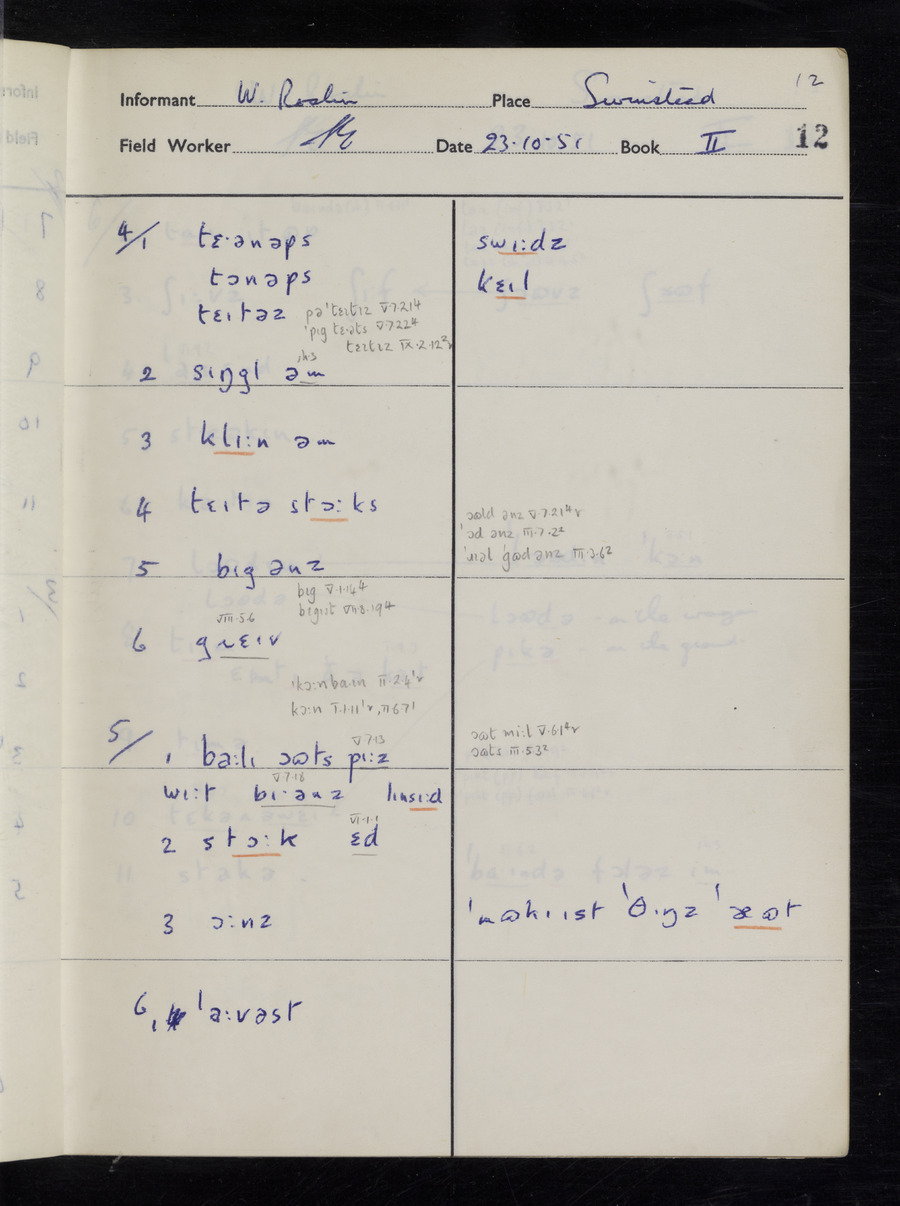 12
Informant W. Roslin Place Swinstead
Field Worker Date 23·10·51 Book II 12
4/1 tɛ·ənəps swɪ:dz
tɔnəps kɛɪl
tɛɪtəz pə'tɛɪtɪz V·7·21⁴
'pɪg tɛ·əts V·7·22⁴
tɛɪtɪz IX·2·12²r
2 sɪŋgl əm
3 klɪ:n əm
4 tɛɪtə stɔ:ks
ɔʊld ənz V·7·21⁴r
'ɔd ənz III·7·2²
5 bɪg ənz 'ɹɪəl 'gʊd ənz III·3·6²
bɪg V·1·14⁴
bɪgɪst VII·8·19⁴
VIII·5·6
6 gɹɛɪv
kɔ:nba:ɪn II·2·4'r
kɔ:n I·1·11'r, II 6 7 1
5/1 ba:lɪ ɔʊts pɪ:z V·7·13
ɔʊt mi:l V·6·1²r
ɔʊts III·5·3²
wɪ:t bɪ·ənz lɪnsɪ:d V·7·18
2 stɔ:k ɛd VI·1·1
3 ɔ:nz 'θɪŋz
6/1 'a:vəst